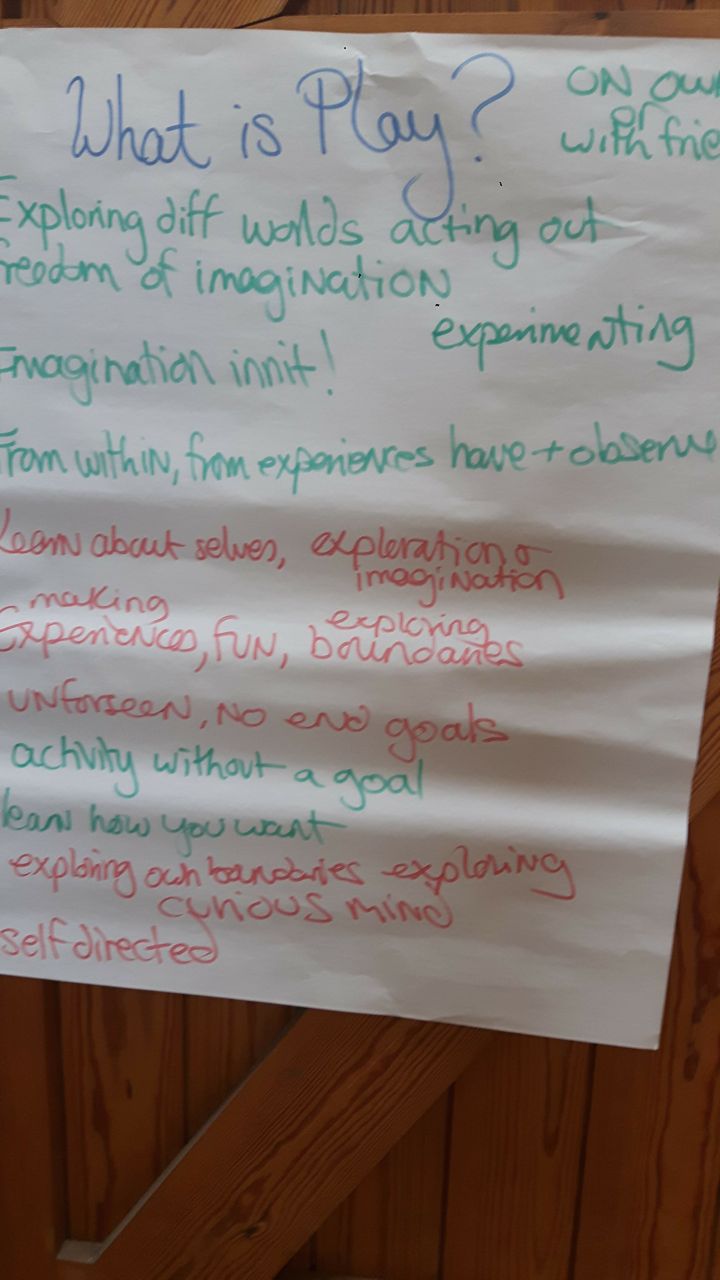 What is Play?
ON own
or
with frie
Exploring diff worlds acting out
freedom of imagiNatioN
experimeNting
Imagination innit!
From withiN, from experiences have + observe
Learn about selves, exploration &
imagiNation
making
Experiences, fuN, exploring boundaries
uNforseeN, No end goals
activity without a goal
learN how you want
exploring own boundaries exploring
curious mind
self directed